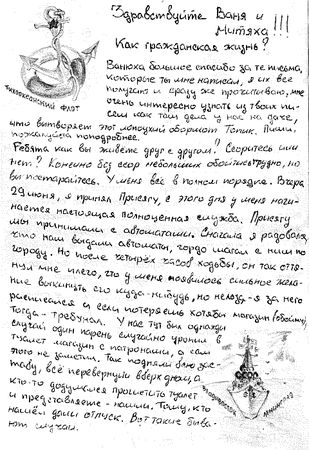 Здравствуйте Ваня и
Митяха!!!
Как гражданская жизнь?
Тихоокеанский флот
Ванюха, большое спасибо за те письма,
которые ты мне написал, я их все
получил и сразу же прочитываю, мне
очень интересно узнать из твоих пи-
сем как там дела у нас на даче,
что вытворяет этот лопоухий обормот Топик. Пиши,
пожалуйста поподробнее.
Ребята как вы живёте друг с другом? Ссоритесь или
нет? Конечно без ссор небольших обойтись трудно, но
вы постарайтесь. У меня всё в полном порядке. Вчера,
29 июня, я принял Присягу, с этого дня у меня начи-
нается настоящая полноценная служба. Присягу
мы принимали с автоматами. Сначала я радовался,
что нам выдали автоматы, гордо шагал с ним по
городу. Но после четырёх часов ходьбы, он так оття-
нул мне плечо, что у меня появилось сильное жела-
ние выкинуть его куда-нибудь, но нельзя - я за него
расписался а если потеряешь хотябы магазин (обойму)
тогда - трибунал. У нас тут был однажды
случай один парень случайно уронил в
туалет магазин с патронами, а сам
этого не заметил. Так подняли всю зас-
таву, всё перевернули вверх дном, а
кто-то додумался прочистить туалет
и представляете - нашли. Тому, кто
нашёл дали отпуск. Вот такие быва-
ют случаи.